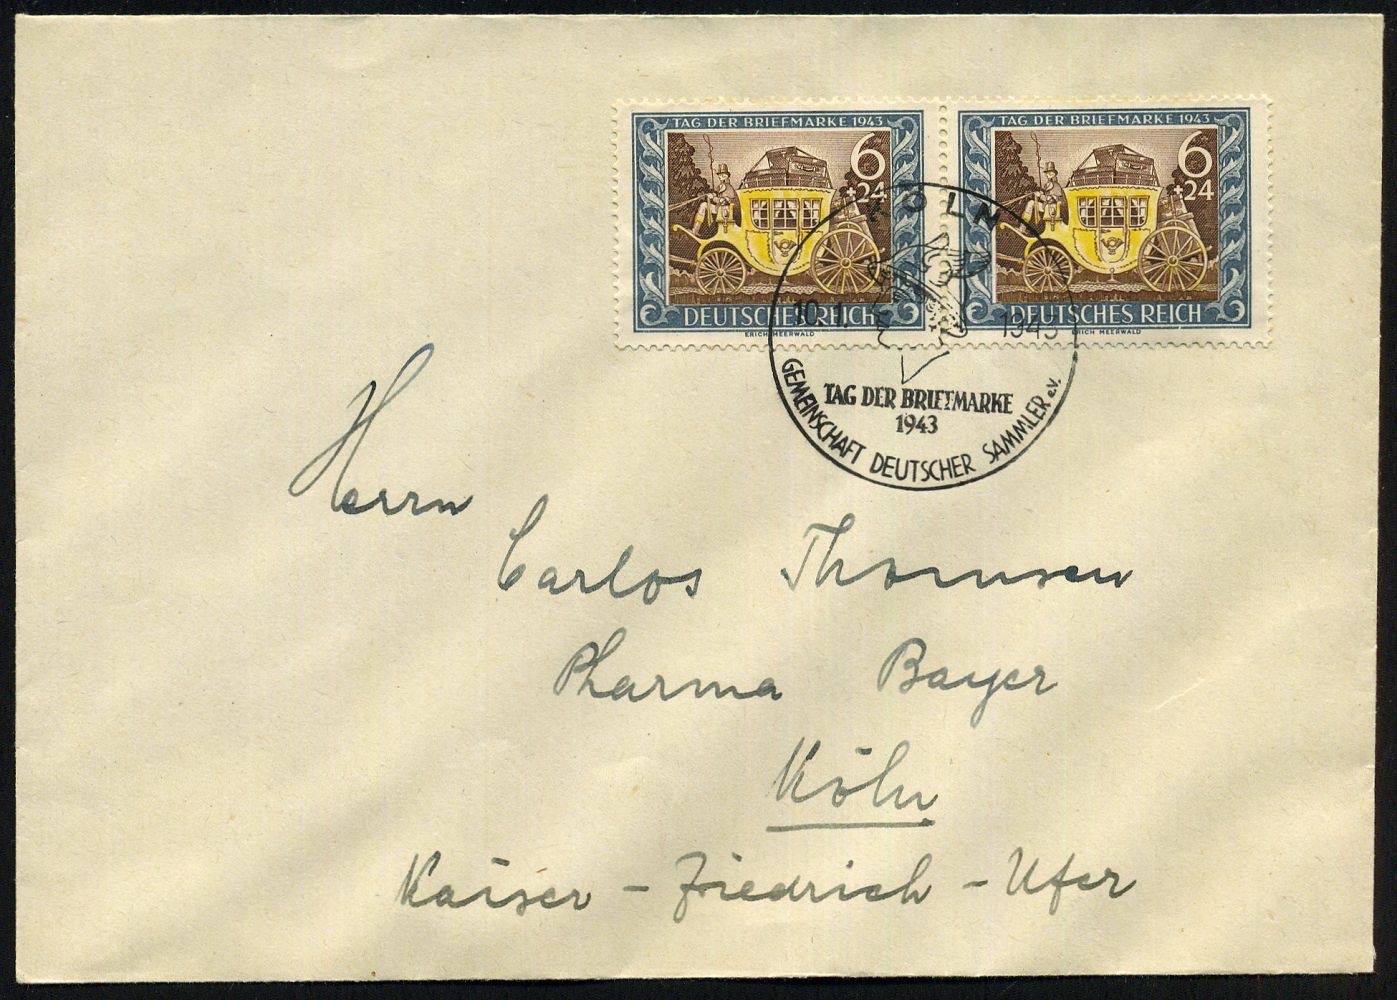 TAG DER BRIEFMARKE 1943
6
+24
DEUTSCHES REICH
ERICH MEERWALD
TAG DER BRIEFMARKE 1943
6
+24
DEUTSCHES REICH
ERICH MEERWALD
KÖLN
10.1. 1943
TAG DER BRIEFMARKE
1943
GEMEINSCHAFT DEUTSCHER SAMMLER e.V.
Herrn
Carlos Thomsen
Pharma Bayer
Köln
Kaiser-Friedrich-Ufer